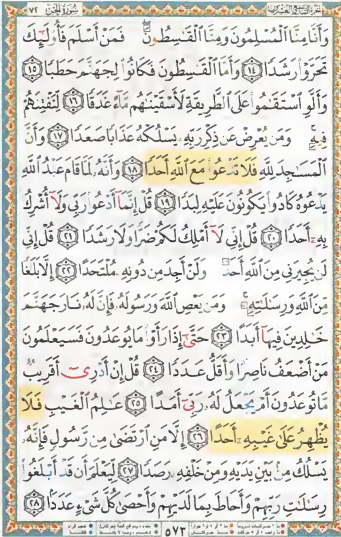 وَأَنَّا مِنَّا ٱلْمُسْلِمُونَ وَمِنَّا ٱلْقَٰسِطُونَ ۖ فَمَنْ أَسْلَمَ فَأُو۟لَٰٓئِكَ
تَحَرَّوْا۟ رَشَدًا ١٤ وَأَمَّا ٱلْقَٰسِطُونَ فَكَانُوا۟ لِجَهَنَّمَ حَطَبًا ١٥
وَأَلَّوِ ٱسْتَقَٰمُوا۟ عَلَى ٱلطَّرِيقَةِ لَأَسْقَيْنَٰهُم مَّآءً غَدَقًا ١٦ لِّنَفْتِنَهُمْ
فِيهِ ۚ وَمَن يُعْرِضْ عَن ذِكْرِ رَبِّهِۦ يَسْلُكْهُ عَذَابًا صَعَدًا ١٧ وَأَنَّ
ٱلْمَسَٰجِدَ لِلَّهِ فَلَا تَدْعُوا۟ مَعَ ٱللَّهِ أَحَدًا ١٨ وَأَنَّهُۥ لَمَّا قَامَ عَبْدُ ٱللَّهِ
يَدْعُوهُ كَادُوا۟ يَكُونُونَ عَلَيْهِ لِبَدًا ١٩ قُلْ إِنَّمَآ أَدْعُوا۟ رَبِّى وَلَآ أُشْرِكُ
بِهِۦٓ أَحَدًا ٢٠ قُلْ إِنِّى لَآ أَمْلِكُ لَكُمْ ضَرًّا وَلَا رَشَدًا ٢١ قُلْ إِنِّى
لَن يُجِيرَنِى مِنَ ٱللَّهِ أَحَدٌ وَلَنْ أَجِدَ مِن دُونِهِۦ مُلْتَحَدًا ٢٢ إِلَّا بَلَٰغًا
مِّنَ ٱللَّهِ وَرِسَٰلَٰتِهِۦ ۚ وَمَن يَعْصِ ٱللَّهَ وَرَسُولَهُۥ فَإِنَّ لَهُۥ نَارَ جَهَنَّمَ
خَٰلِدِينَ فِيهَآ أَبَدًا ٢٣ حَتَّىٰٓ إِذَا رَأَوْا۟ مَا يُوعَدُونَ فَسَيَعْلَمُونَ
مَنْ أَضْعَفُ نَاصِرًا وَأَقَلُّ عَدَدًا ٢٤ قُلْ إِنْ أَدْرِىٓ أَقَرِيبٌ
مَّا تُوعَدُونَ أَمْ يَجْعَلُ لَهُۥ رَبِّىٓ أَمَدًا ٢٥ عَٰلِمُ ٱلْغَيْبِ فَلَا
يُظْهِرُ عَلَىٰ غَيْبِهِۦٓ أَحَدًا ٢٦ إِلَّا مَنِ ٱرْتَضَىٰ مِن رَّسُولٍ فَإِنَّهُۥ
يَسْلُكُ مِنۢ بَيْنِ يَدَيْهِ وَمِنْ خَلْفِهِۦ رَصَدًا ٢٧ لِّيَعْلَمَ أَن قَدْ أَبْلَغُوا۟
رِسَٰلَٰتِ رَبِّهِمْ وَأَحَاطَ بِمَا لَدَيْهِمْ وَأَحْصَىٰ كُلَّ شَىْءٍ عَدَدًۢا ٢٨
٥٧٣